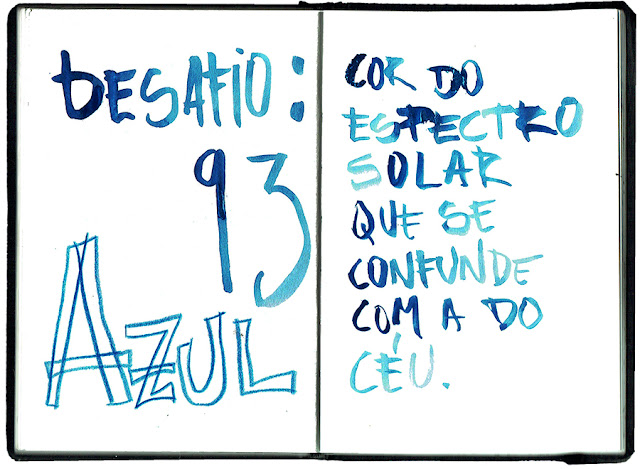 DESAFIO:
93
AZUL
COR DO
ESPECTRO
SOLAR
QUE SE
CONFUNDE
COM A DO
CÉU.